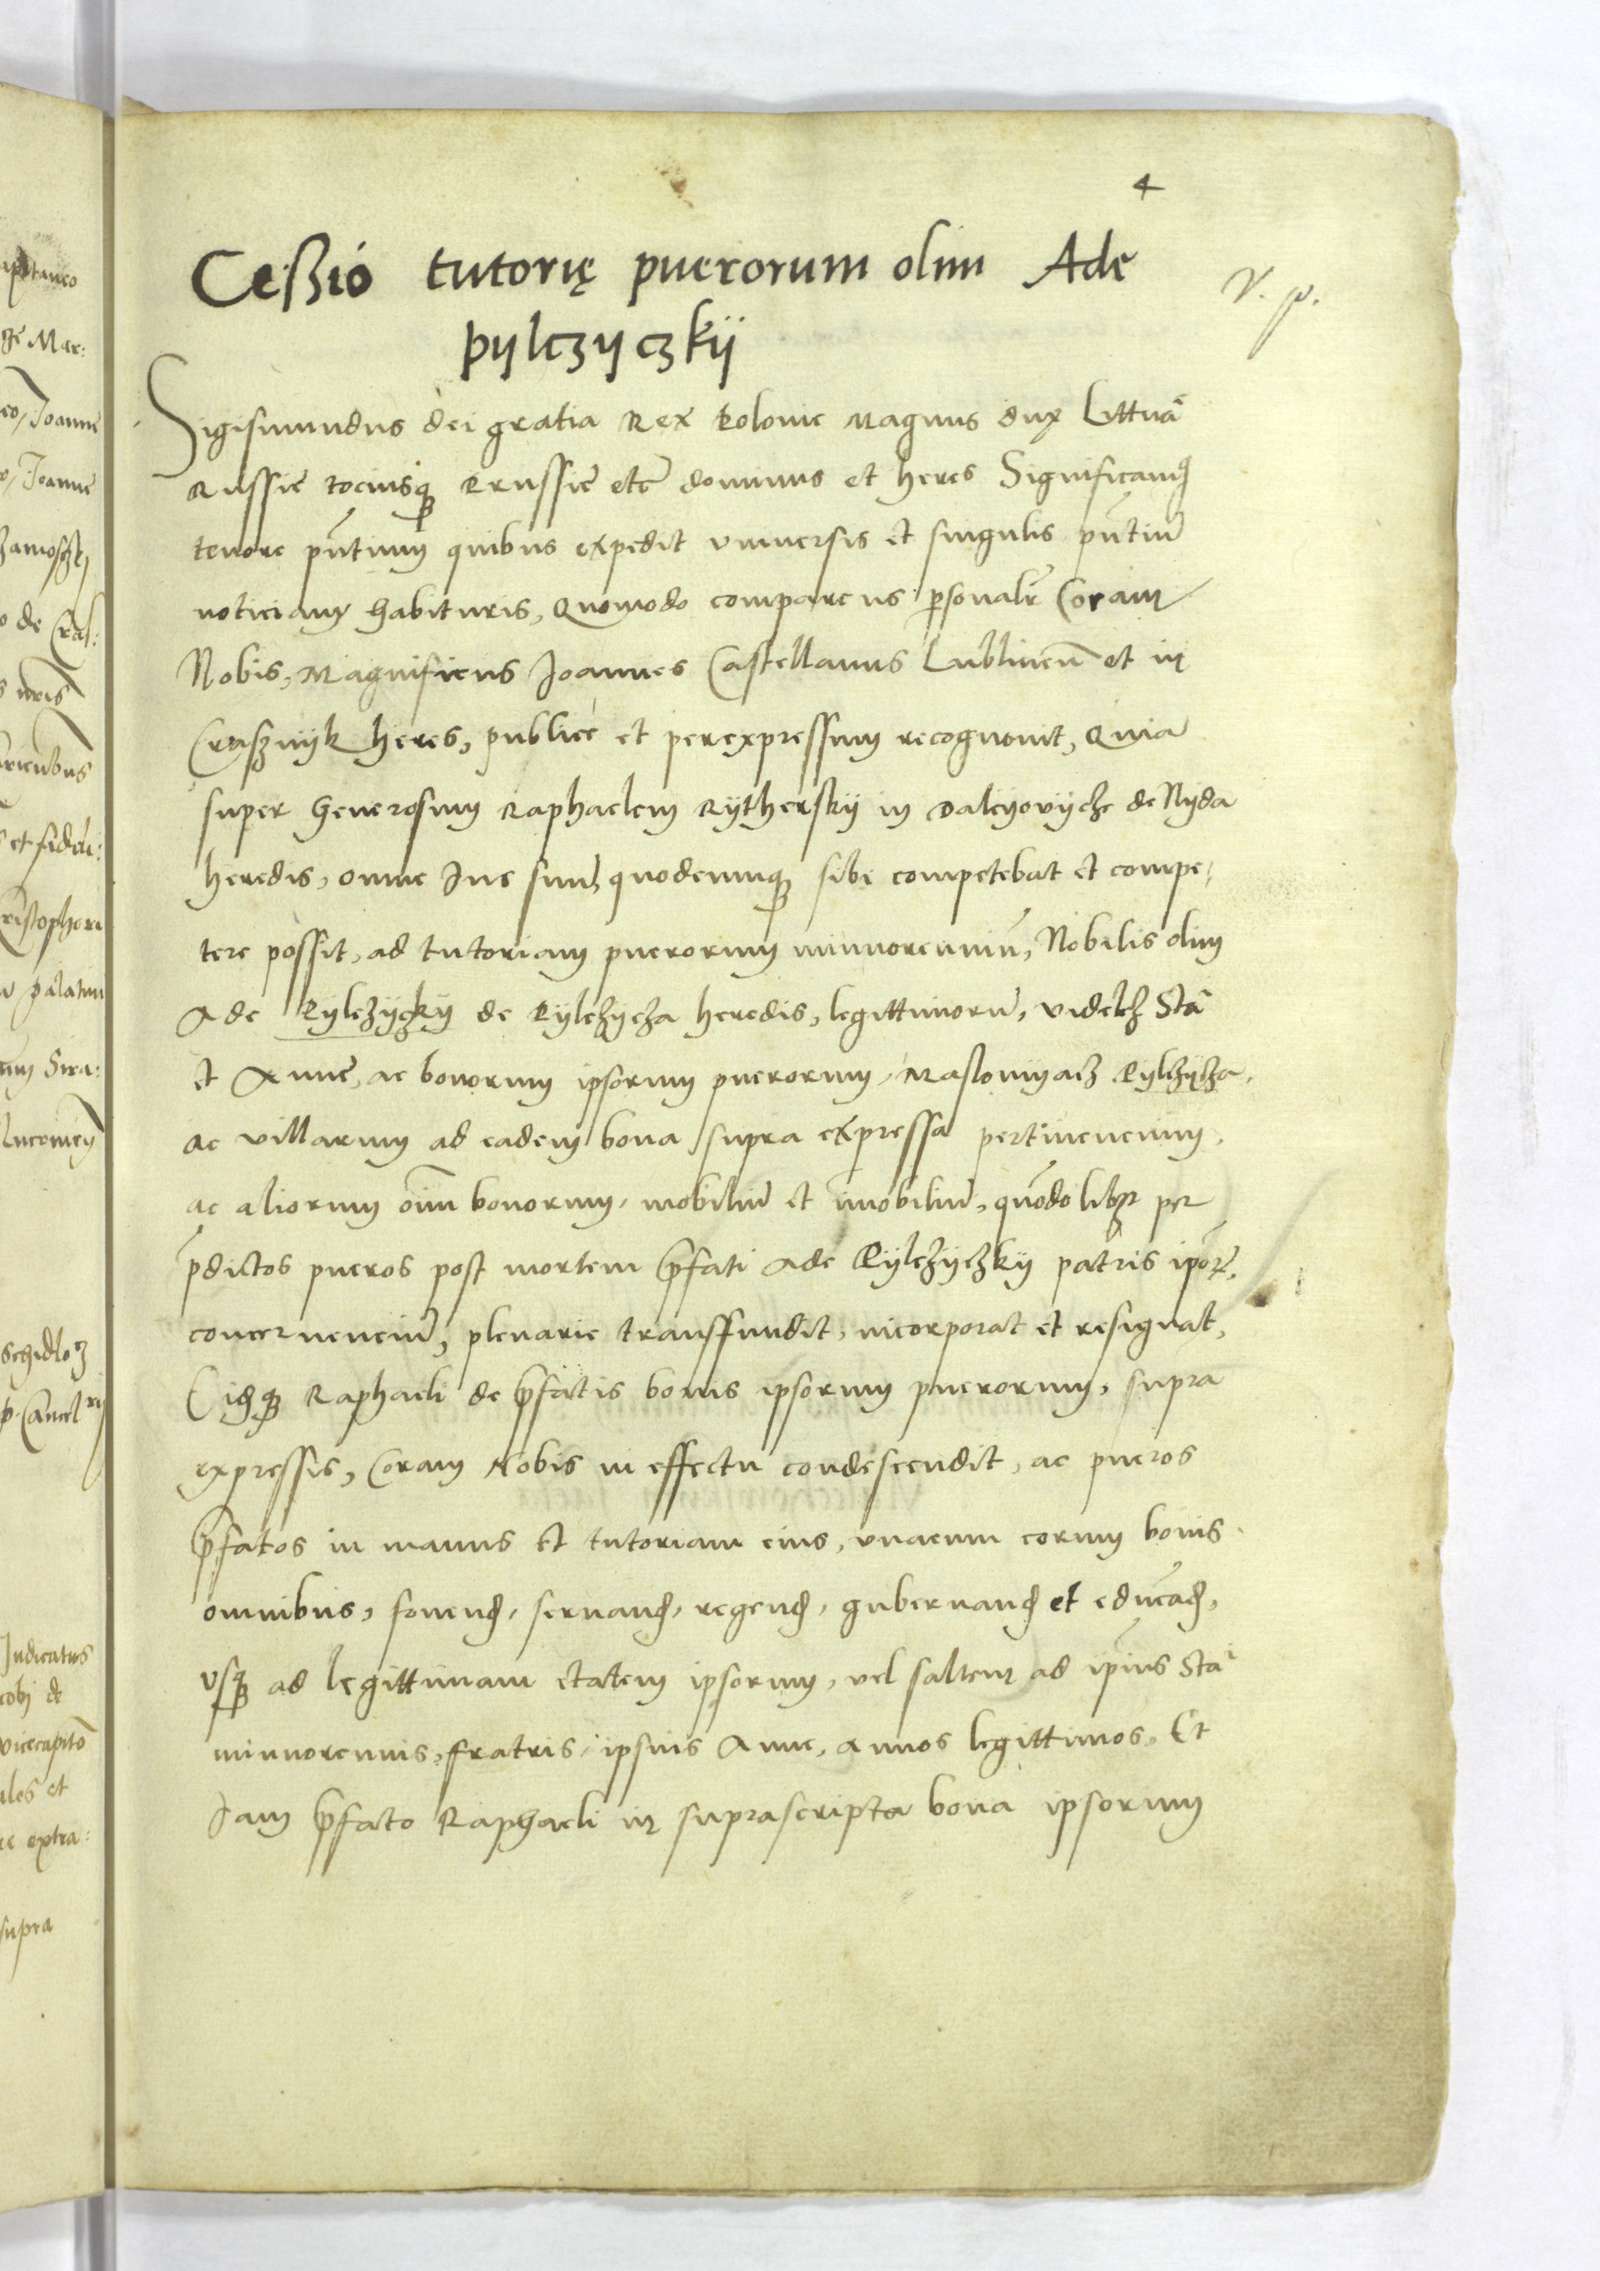 4
Ceßio tutorię puerorum olim Ade
pylczyczkij
V. p.
Sigismundus dei gratia Rex Polonie Magnus dux Littuã
Russie tociusq̃ Prussie etc̃ dominus et heres Significamꝰ
tenore pñtium quibus expedit vniuersis et singulis pñtiũ
noticiam habituris, Quomodo comparens p̱sonalr̃ Coram
Nobis, Magnificus Joannes Castellanus Lublineñ et in
Crasznyk heres, publice et perexpressum recognouit, Quia
super Generosum Raphaelem Rytherskij in Daleyovycze de Nyda
heredis, omne Ius suum quodcumq̃ sibi competebat et compe-
tere possit, ad tutoriam puerorum minnorenniũ, Nobilis olim
Ade Pylczyczkij de Pylczycza heredis, legittimorũ, videlcz Stã
et Anne, ac bonorum ipsorum puerorum, Maslomyacz Pylczycza,
ac villarum ad eadem bona supra expressa pertinencium,
ac aliorum oĩm bonorum, mobiliũ et ĩmobiliũ, quõdolibet per
p̃dictos pueros post mortem p̃fati Ade Pylczyczkij patris ipõr̃,
concernenciũ, plenarie transffundit, incorporat et resignat,
Eidq̃ Raphaeli de p̃fatis bonis ipsorum puerorum, supra
expressis, Coram Nobis in effectu condescendit, ac pueros
p̃fatos in manus et tutoriam eius, vnacum eorum bonis
omnibus, fouenđ, seruanđ, regenđ, gubernanđ et educãđ,
vsq̃ ad legittimam etatem ipsorum, vel saltem ad ip̃ius Stã
minnorennis, fratris ipsius Anne, annos legittimos, Et
Jam p̃fato Raphaeli in suprascripta bona ipsorum